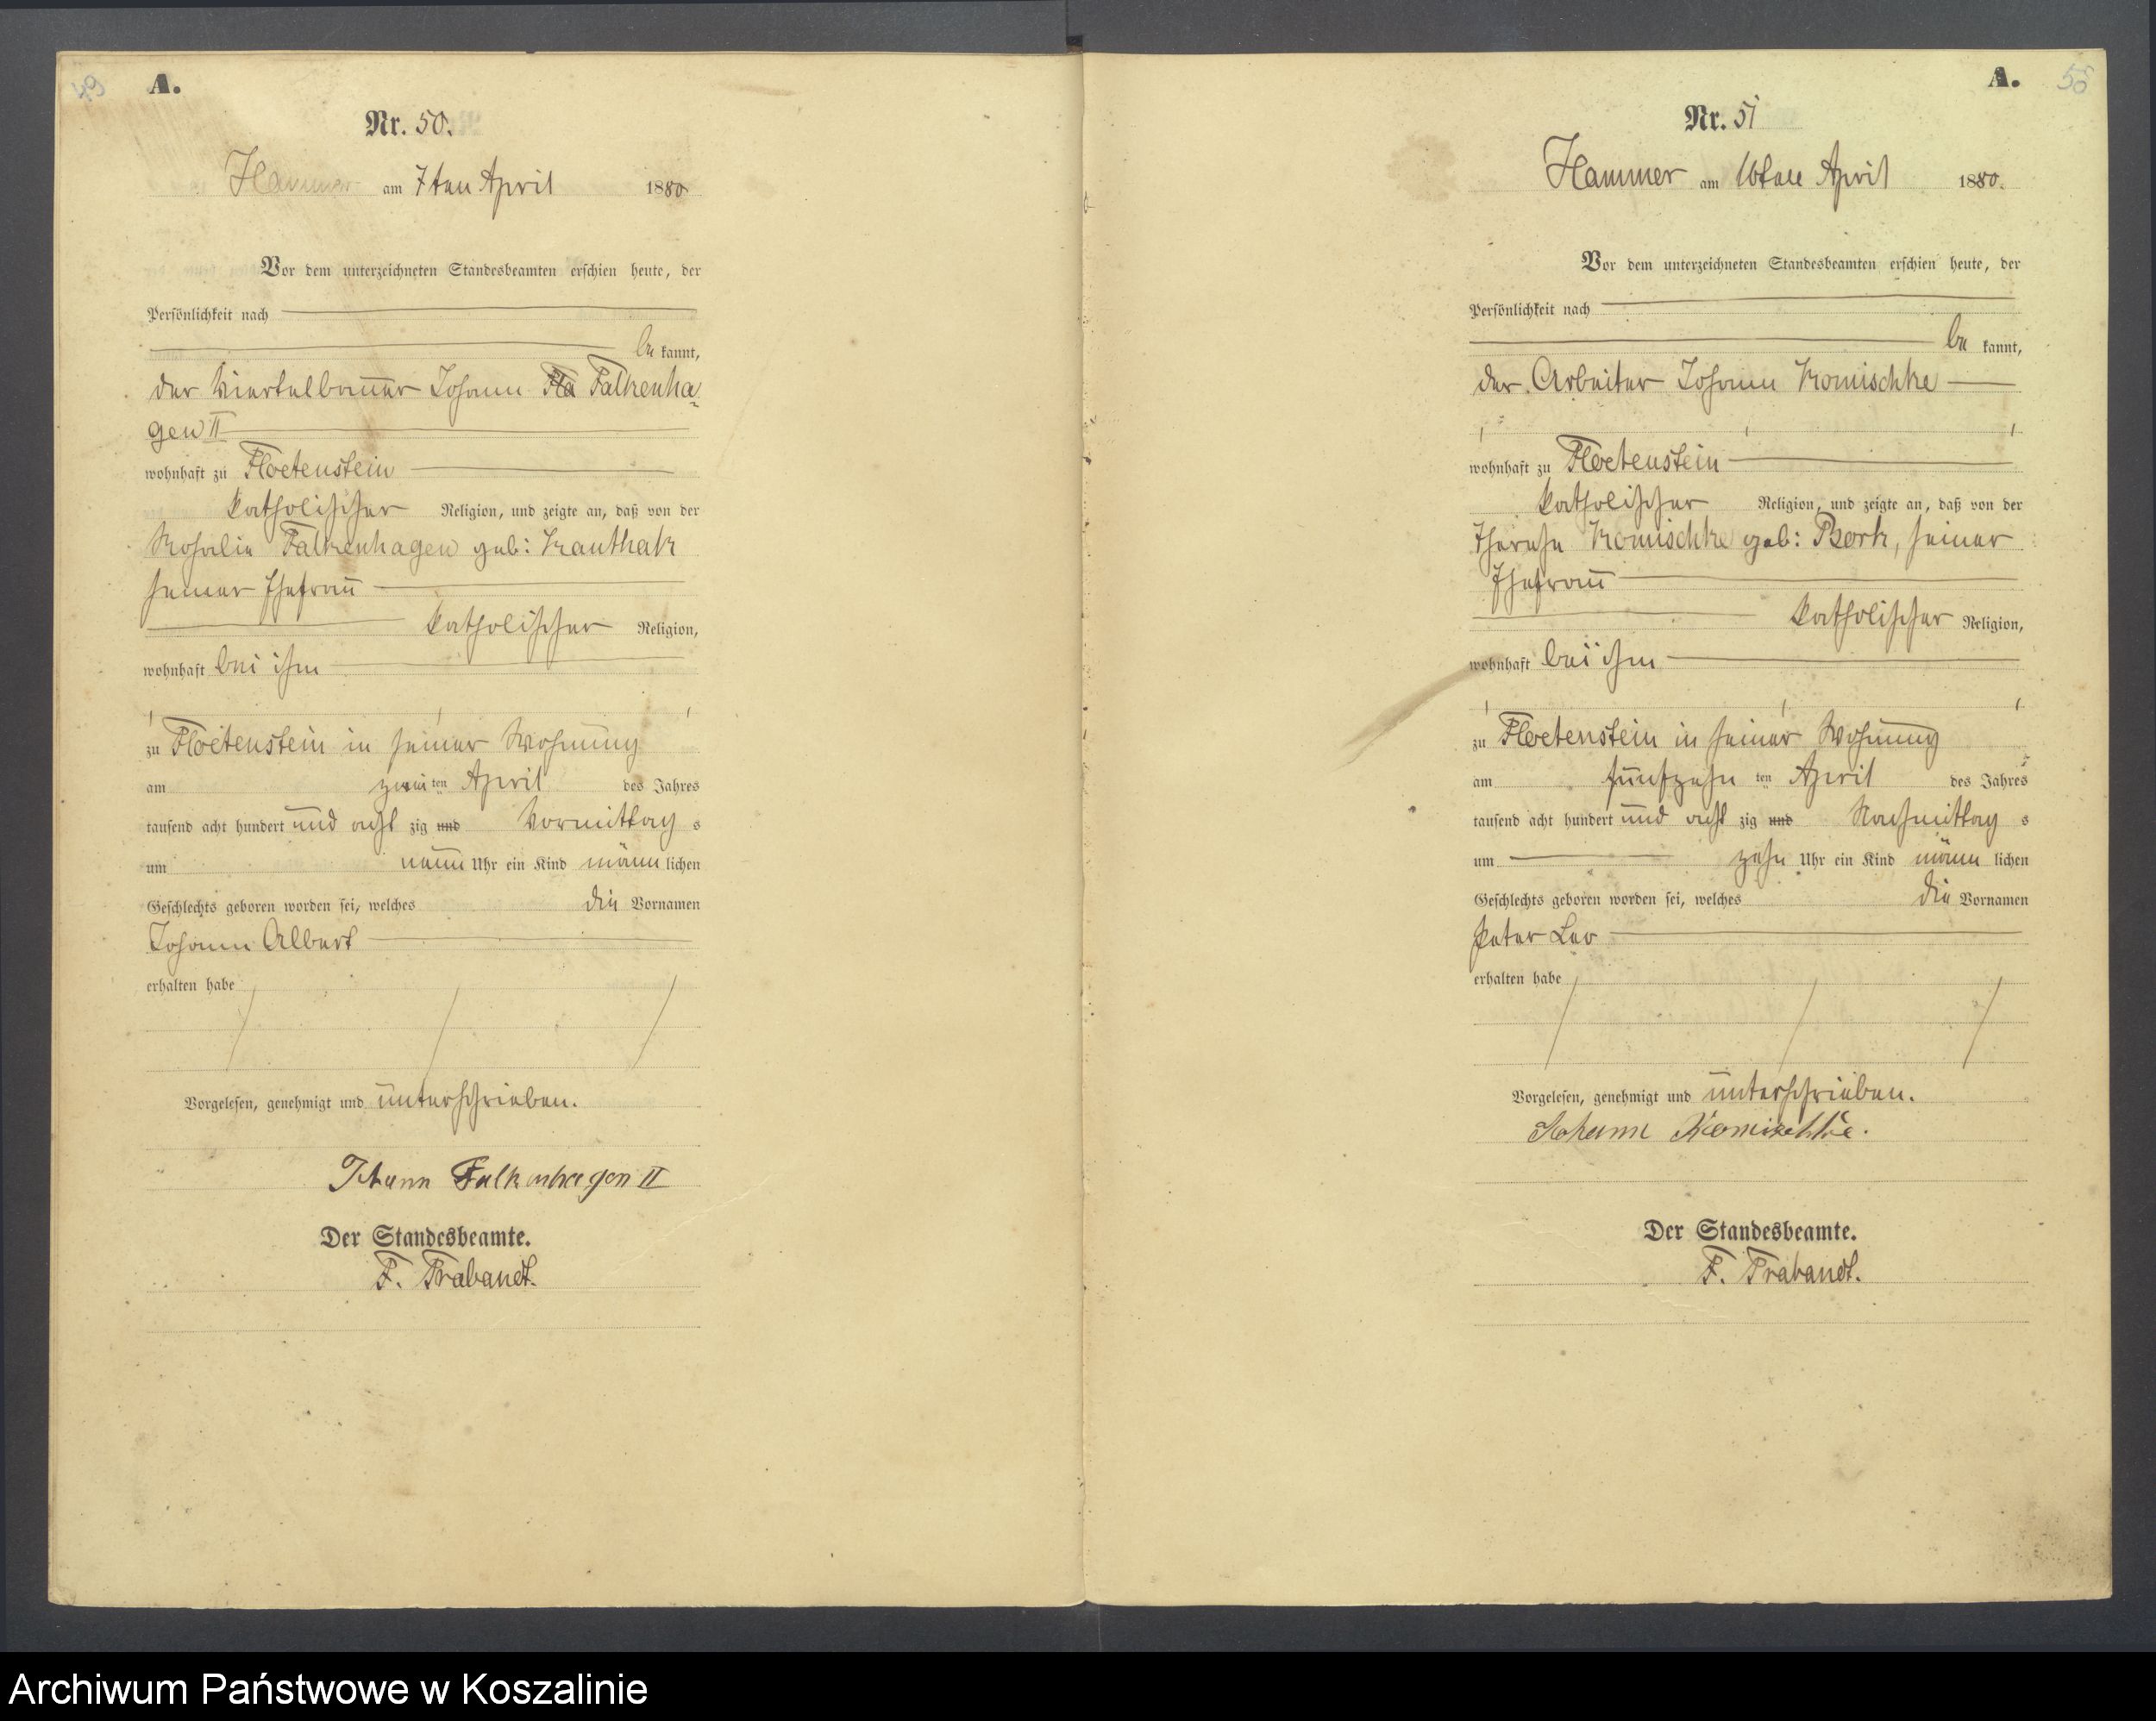 49
A.
Nr. 50.
Hammer am 7ten April 1880
Vor dem unterzeichneten Standesbeamten erschien heute, der
Persönlichkeit nach
be kannt,
der Viertelbauer Johann Fla Falkenha-
gen II
wohnhaft zu Floetenstein
katholischer Religion, und zeigte an, daß von der
Rosalie Falkenhagen geb: Kauthak
seiner Ehefrau
katholischer Religion,
wohnhaft bei ihm
zu Floetenstein in seiner Wohnung
am zwei ten April des Jahres
tausend acht hundert und acht zig und Vormittag s
um neun Uhr ein Kind männ lichen
Geschlechts geboren worden sei, welches die Vornamen
Johann Albert
erhalten habe
Vorgelesen, genehmigt und unterschrieben.
Johann Falkenhagen II
Der Standesbeamte.
F. Trabandt.
A.
Nr. 51
Hammer am 16ten April 1880.
Vor dem unterzeichneten Standesbeamten erschien heute, der
Persönlichkeit nach
be kannt,
der Arbeiter Johann Komischke
wohnhaft zu Floetenstein
katholischer Religion, und zeigte an, daß von der
Therese Komischke geb: Bork, seiner
Ehefrau
katholischer Religion,
wohnhaft bei ihm
zu Floetenstein in seiner Wohnung
am fünfzehn ten April des Jahres
tausend acht hundert und acht zig und Nachmittag s
um zehn Uhr ein Kind männ lichen
Geschlechts geboren worden sei, welches die Vornamen
Peter Leo
erhalten habe
Vorgelesen, genehmigt und unterschrieben.
Johann Komischke.
Der Standesbeamte.
F. Trabandt.
Archiwum Państwowe w Koszalinie